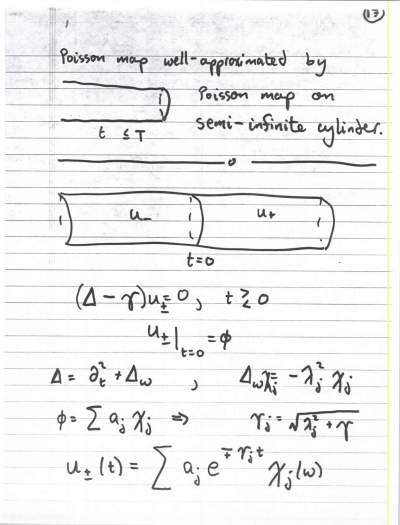 (17)
Poisson map well-approximated by
Poisson map on
semi-infinite cylinder.
t ≤ T
u_- u_+
t=0
(Δ - γ)u_± = 0, t ≷ 0
u_±|_{t=0} = φ
Δ = ∂_t^2 + Δ_ω , Δ_ω χ_j = -λ_j^2 χ_j
φ = ∑ a_j χ_j ⇒ γ_j = √(λ_j^2 + γ)
u_±(t) = ∑ a_j e^{∓γ_j t} χ_j(ω)